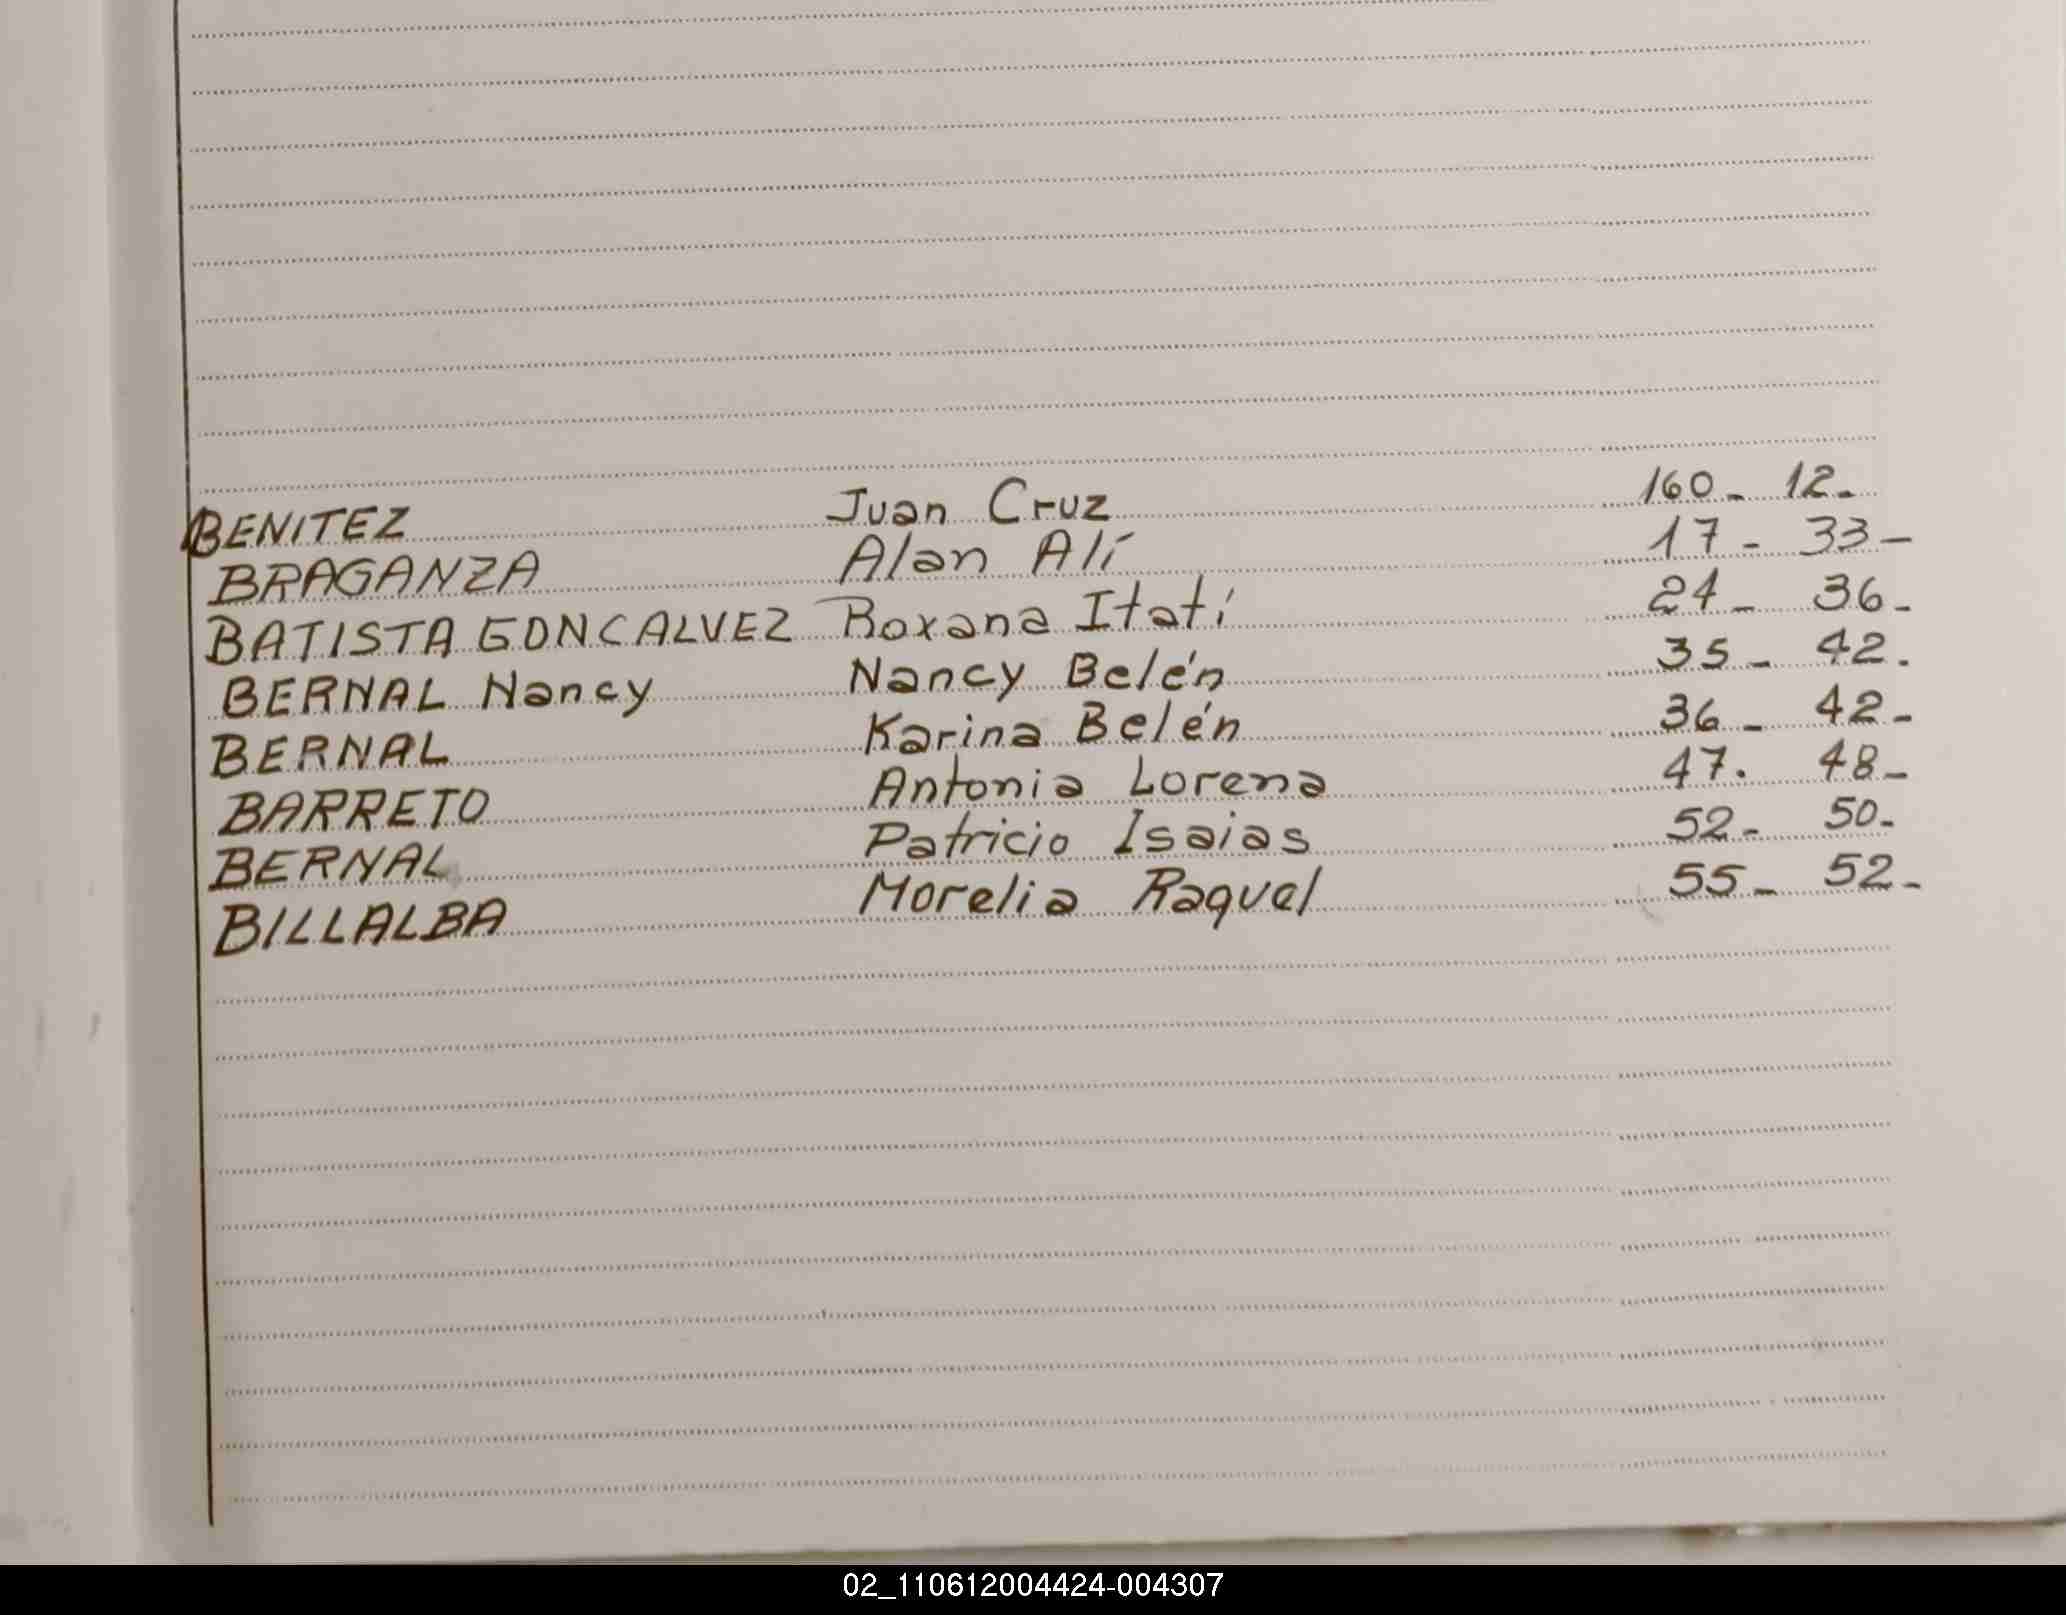 BENITEZ Juan Cruz 160- 12-
BRAGANZA Alan Alí 17- 33-
BATISTA GONCALVEZ Roxana Itatí 24- 36-
BERNAL Nancy Nancy Belén 35- 42.
BERNAL Karina Belén 36- 42-
BARRETO Antonia Lorena 47. 48-
BERNAL Patricio Isaias 52- 50-
BILLALBA Morelia Raquel 55- 52-
02_110612004424-004307